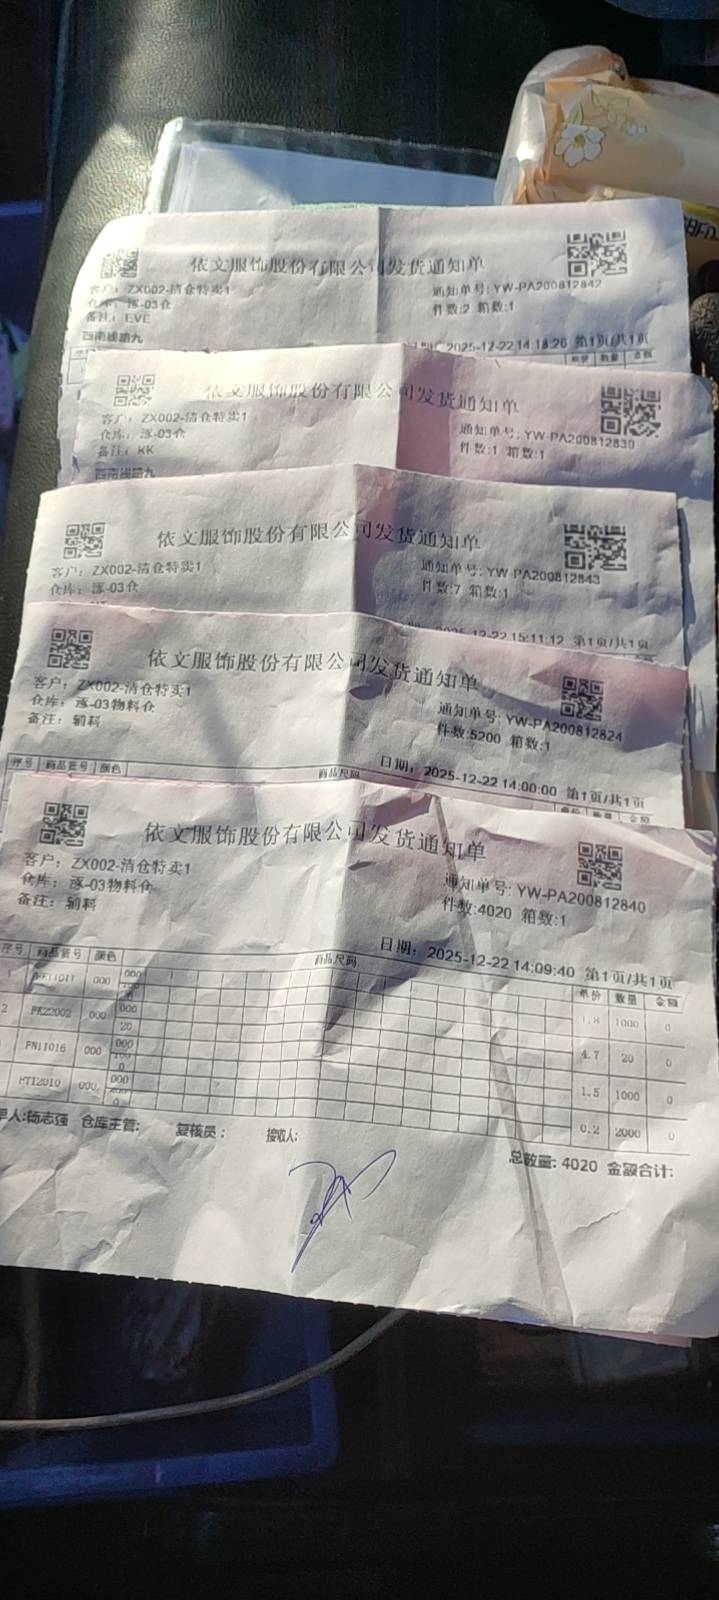 依文服饰股份有限公司发货通知单
客户：ZX002-清仓特卖1
通知单号：YW-PA200812842
仓库：涿-03仓
件数:2 箱数:1
备注：EVE
西南线路九
2025-12-22 14:18:26 第1页/共1页
单价 数量 金额
依文服饰股份有限公司发货通知单
客户：ZX002-清仓特卖1
通知单号：YW-PA200812830
仓库：涿-03仓
件数:1 箱数:1
备注：KK
西南线路九
依文服饰股份有限公司发货通知单
客户：ZX002-清仓特卖1
通知单号：YW-PA200812843
仓库：涿-03仓
件数:7 箱数:1
2025-12-22 15:11:12 第1页/共1页
依文服饰股份有限公司发货通知单
客户：ZX002-清仓特卖1
通知单号：YW-PA200812824
仓库：涿-03物料仓
件数:5200 箱数:1
备注：辅料
日期：2025-12-22 14:00:00 第1页/共1页
序号 商品款号 颜色 商品尺码 单价 数量 金额
依文服饰股份有限公司发货通知单
客户：ZX002-清仓特卖1
通知单号：YW-PA200812840
仓库：涿-03物料仓
件数:4020 箱数:1
备注：辅料
日期：2025-12-22 14:09:40 第1页/共1页
序号 商品款号 颜色 商品尺码 单价 数量 金额
1 000 000 1000 0
2 FKZ2002 000 000 20 4.7 20 0
FN11016 000 000 1.5 1000 0
FT12010 000 000 0.2 2000 0
单人:杨志强 仓库主管: 复核员： 接收人:
总数量: 4020 金额合计: